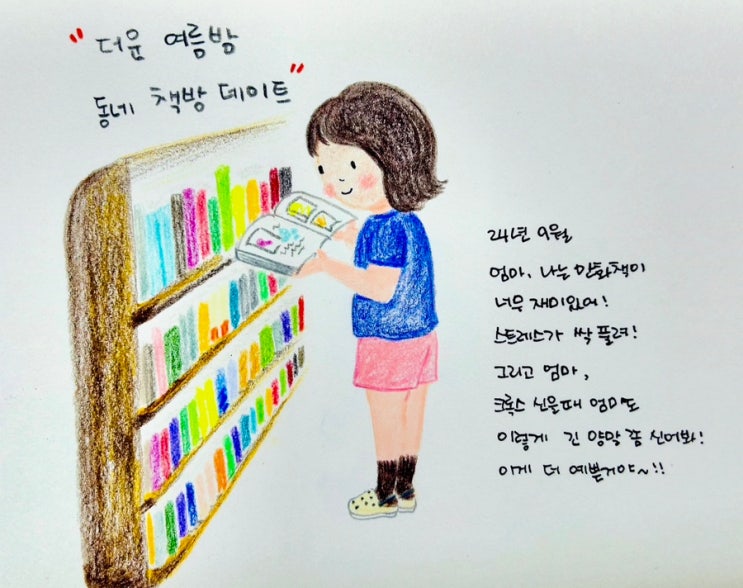 "더운 여름밤
동네 책방 데이트"
24년 9월
엄마, 나는 만화책이
너무 재미있어!
스트레스가 싹 풀려!
그리고 엄마,
크록스 신을때 엄마도
이렇게 긴 양말 좀 신어봐!
이게 더 예쁜거야~!!